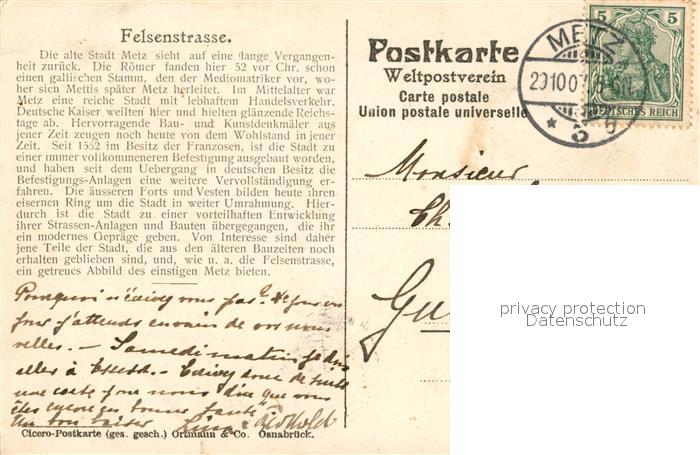 Felsenstrasse.
Die alte Stadt Metz sieht auf eine lange Vergangen-
heit zurück. Die Römer fanden hier 52 vor Chr. schon
einen gallischen Stamm, den der Mediomatriker vor, wo-
her sich Mettis später Metz herleitet. Im Mittelalter war
Metz eine reiche Stadt mit lebhaftem Handelsverkehr.
Deutsche Kaiser weilten hier und hielten glänzende Reichs-
tage ab. Hervorragende Bau- und Kunstdenkmäler aus
jener Zeit zeugen noch heute von dem Wohlstand in jener
Zeit. Seit 1552 im Besitz der Franzosen, ist die Stadt zu
einer immer vollkommeneren Befestigung ausgebaut worden,
und haben seit dem Uebergang in deutschen Besitz die
Befestigungs-Anlagen eine weitere Vervollständigung er-
fahren. Die äusseren Forts und Vesten bilden heute ihren
eisernen Ring um die Stadt in weiter Umrahmung. Hier-
durch ist die Stadt zu einer vorteilhaften Entwicklung
ihrer Strassen-Anlagen und Bauten übergegangen, die ihr
ein modernes Gepräge geben. Von Interesse sind daher
jene Teile der Stadt, die aus den älteren Bauzeiten noch
erhalten geblieben sind, und, wie u. a. die Felsenstrasse,
ein getreues Abbild des einstigen Metz bieten.
Pourquoi n'écrivez vous pas? De jour en
jour j'attends en vain de vos nou-
velles. — Samedi matin je dois
aller à Brest. — Ecrivez donc de suite
une carte pour nous dire que vous
êtes encore en bonne santé
Un bon baiser
Cicero-Postkarte (ges. gesch.) Ortmann & Co. Osnabrück.
Postkarte
Weltpostverein
Carte postale
Union postale universelle
5 5
DEUTSCHES REICH
METZ
29 10 07
* 3 b
Monsieur
Ch.
Gu
privacy protection
Datenschutz